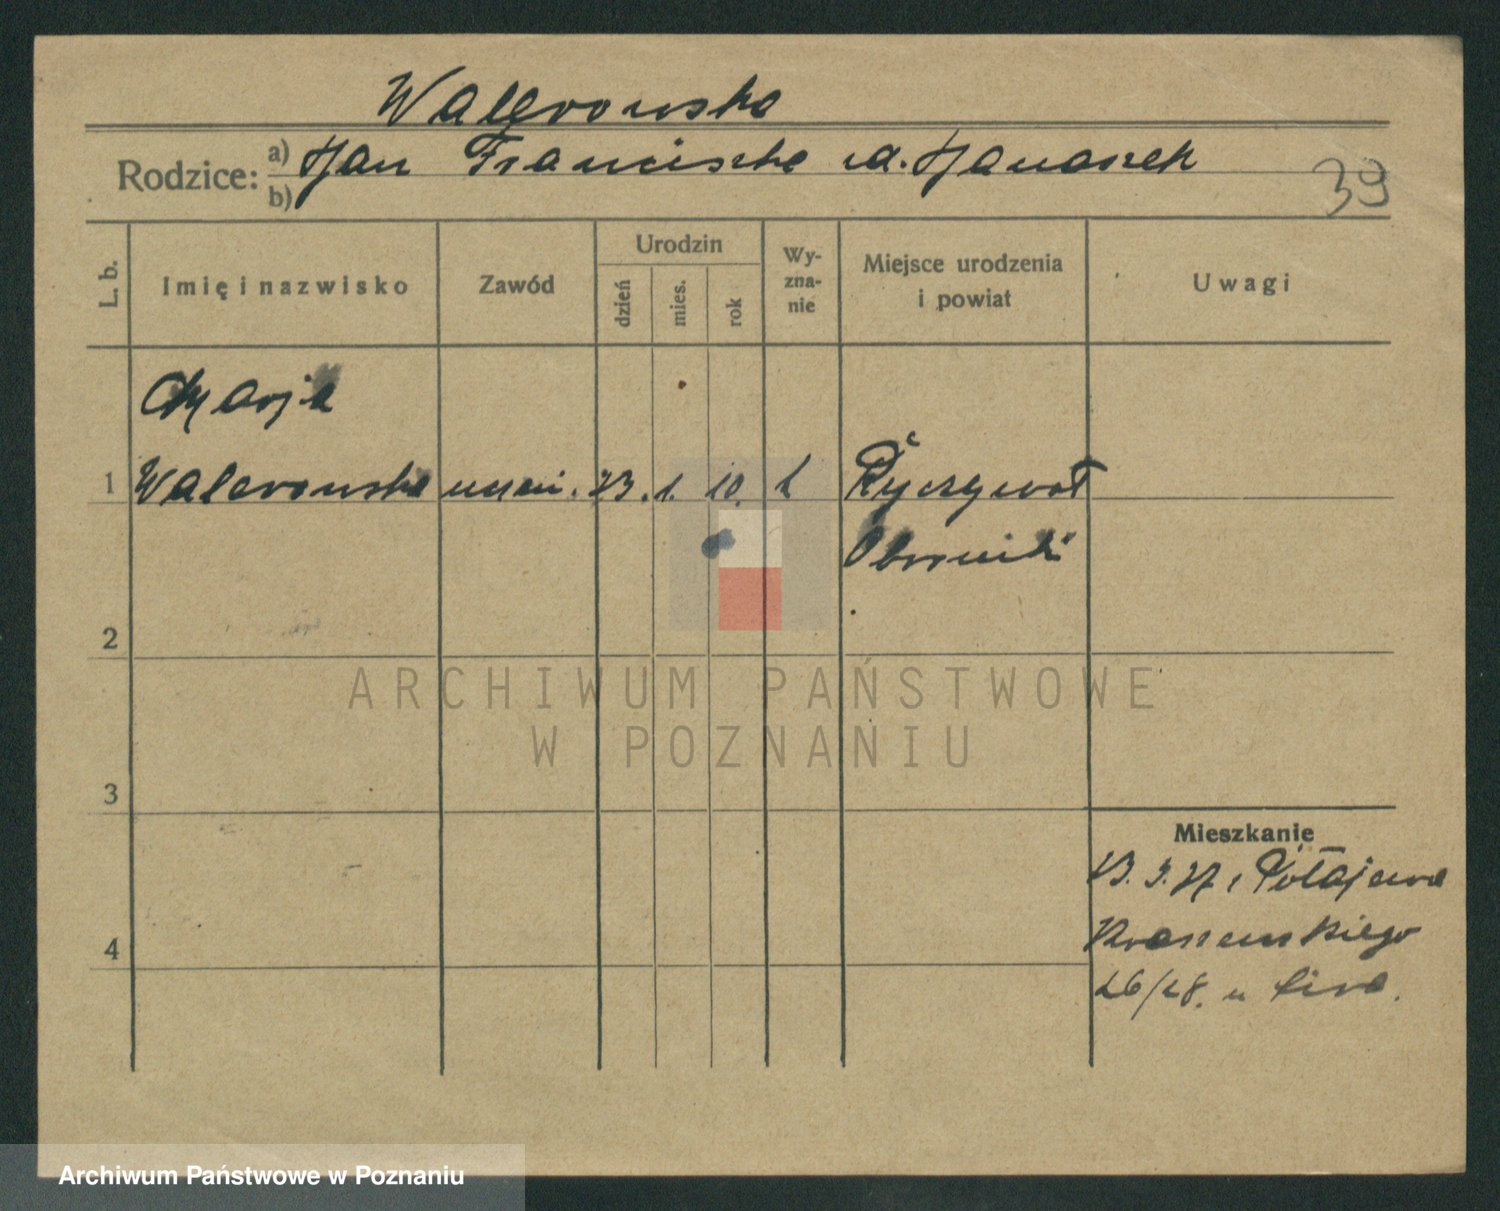 Walerowska
Rodzice: a) Jan Franciszka ur. Janaszek
b)
39
L. b. Imię i nazwisko Zawód Urodzin dzień mies. rok Wyznanie Miejsce urodzenia i powiat Uwagi
Marja
1 Walerowska 1. 10. Ryczywół
Oborniki
2
3
Mieszkanie
Połajewa
4 Kraszewskiego
26/28. u
ARCHIWUM PAŃSTWOWE
W POZNANIU
Archiwum Państwowe w Poznaniu